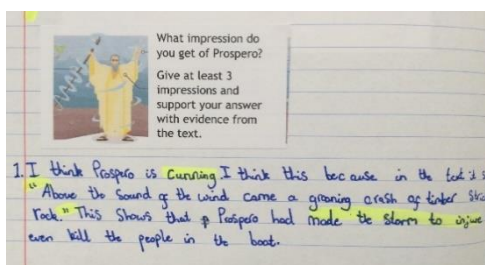 What impression do
you get of Prospero?
Give at least 3
impressions and
support your answer
with evidence from
the text.
1. I think Prospero is cunning I think this because in the text it s
"Above the sound of the wind came a groaning crash of timber
rock." This shows that Prospero had made the storm to injure
even kill the people in the boat.